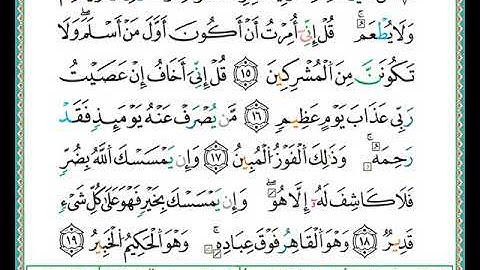 وَلَا يُطْعَمُ ۗ قُلْ إِنِّي أُمِرْتُ أَنْ أَكُونَ أَوَّلَ مَنْ أَسْلَمَ ۖ وَلَا
تَكُونَنَّ مِنَ الْمُشْرِكِينَ ١٥ قُلْ إِنِّي أَخَافُ إِنْ عَصَيْتُ
رَبِّي عَذَابَ يَوْمٍ عَظِيمٍ ١٦ مَّن يُصْرَفْ عَنْهُ يَوْمَئِذٍ فَقَدْ
رَحِمَهُ ۚ وَذَٰلِكَ الْفَوْزُ الْمُبِينُ ١٧ وَإِن يَمْسَسْكَ اللَّهُ بِضُرٍّ
فَلَا كَاشِفَ لَهُ إِلَّا هُوَ ۖ وَإِن يَمْسَسْكَ بِخَيْرٍ فَهُوَ عَلَىٰ كُلِّ شَيْءٍ
قَدِيرٌ ١٨ وَهُوَ الْقَاهِرُ فَوْقَ عِبَادِهِ ۚ وَهُوَ الْحَكِيمُ الْخَبِيرُ ١٩